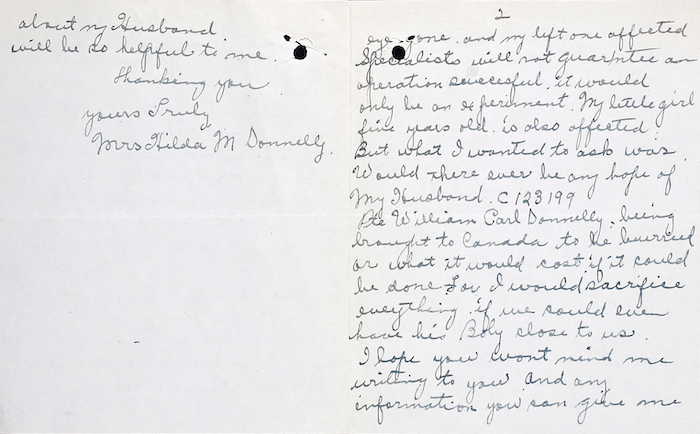 2
eye gone. and my left one affected
Specialists will not guarntee an
operation sucessful. it would
only be an experiment. My little girl
five years old. is also affected.
But what I wanted to ask was.
Would there ever be any hope of
My Husband. C123199
Pte William Carl Donnelly. being
brought to Canada to be burried
or what it would cost if it could
be done. For I would sacrifice
everything. if we could even
have his Body close to us.
I hope you wont mind me
writing to you. and any
information you can give me
about my Husband.
will be so helpful to me.
Thanking you
yours Truly
Mrs Hilda M Donnelly.